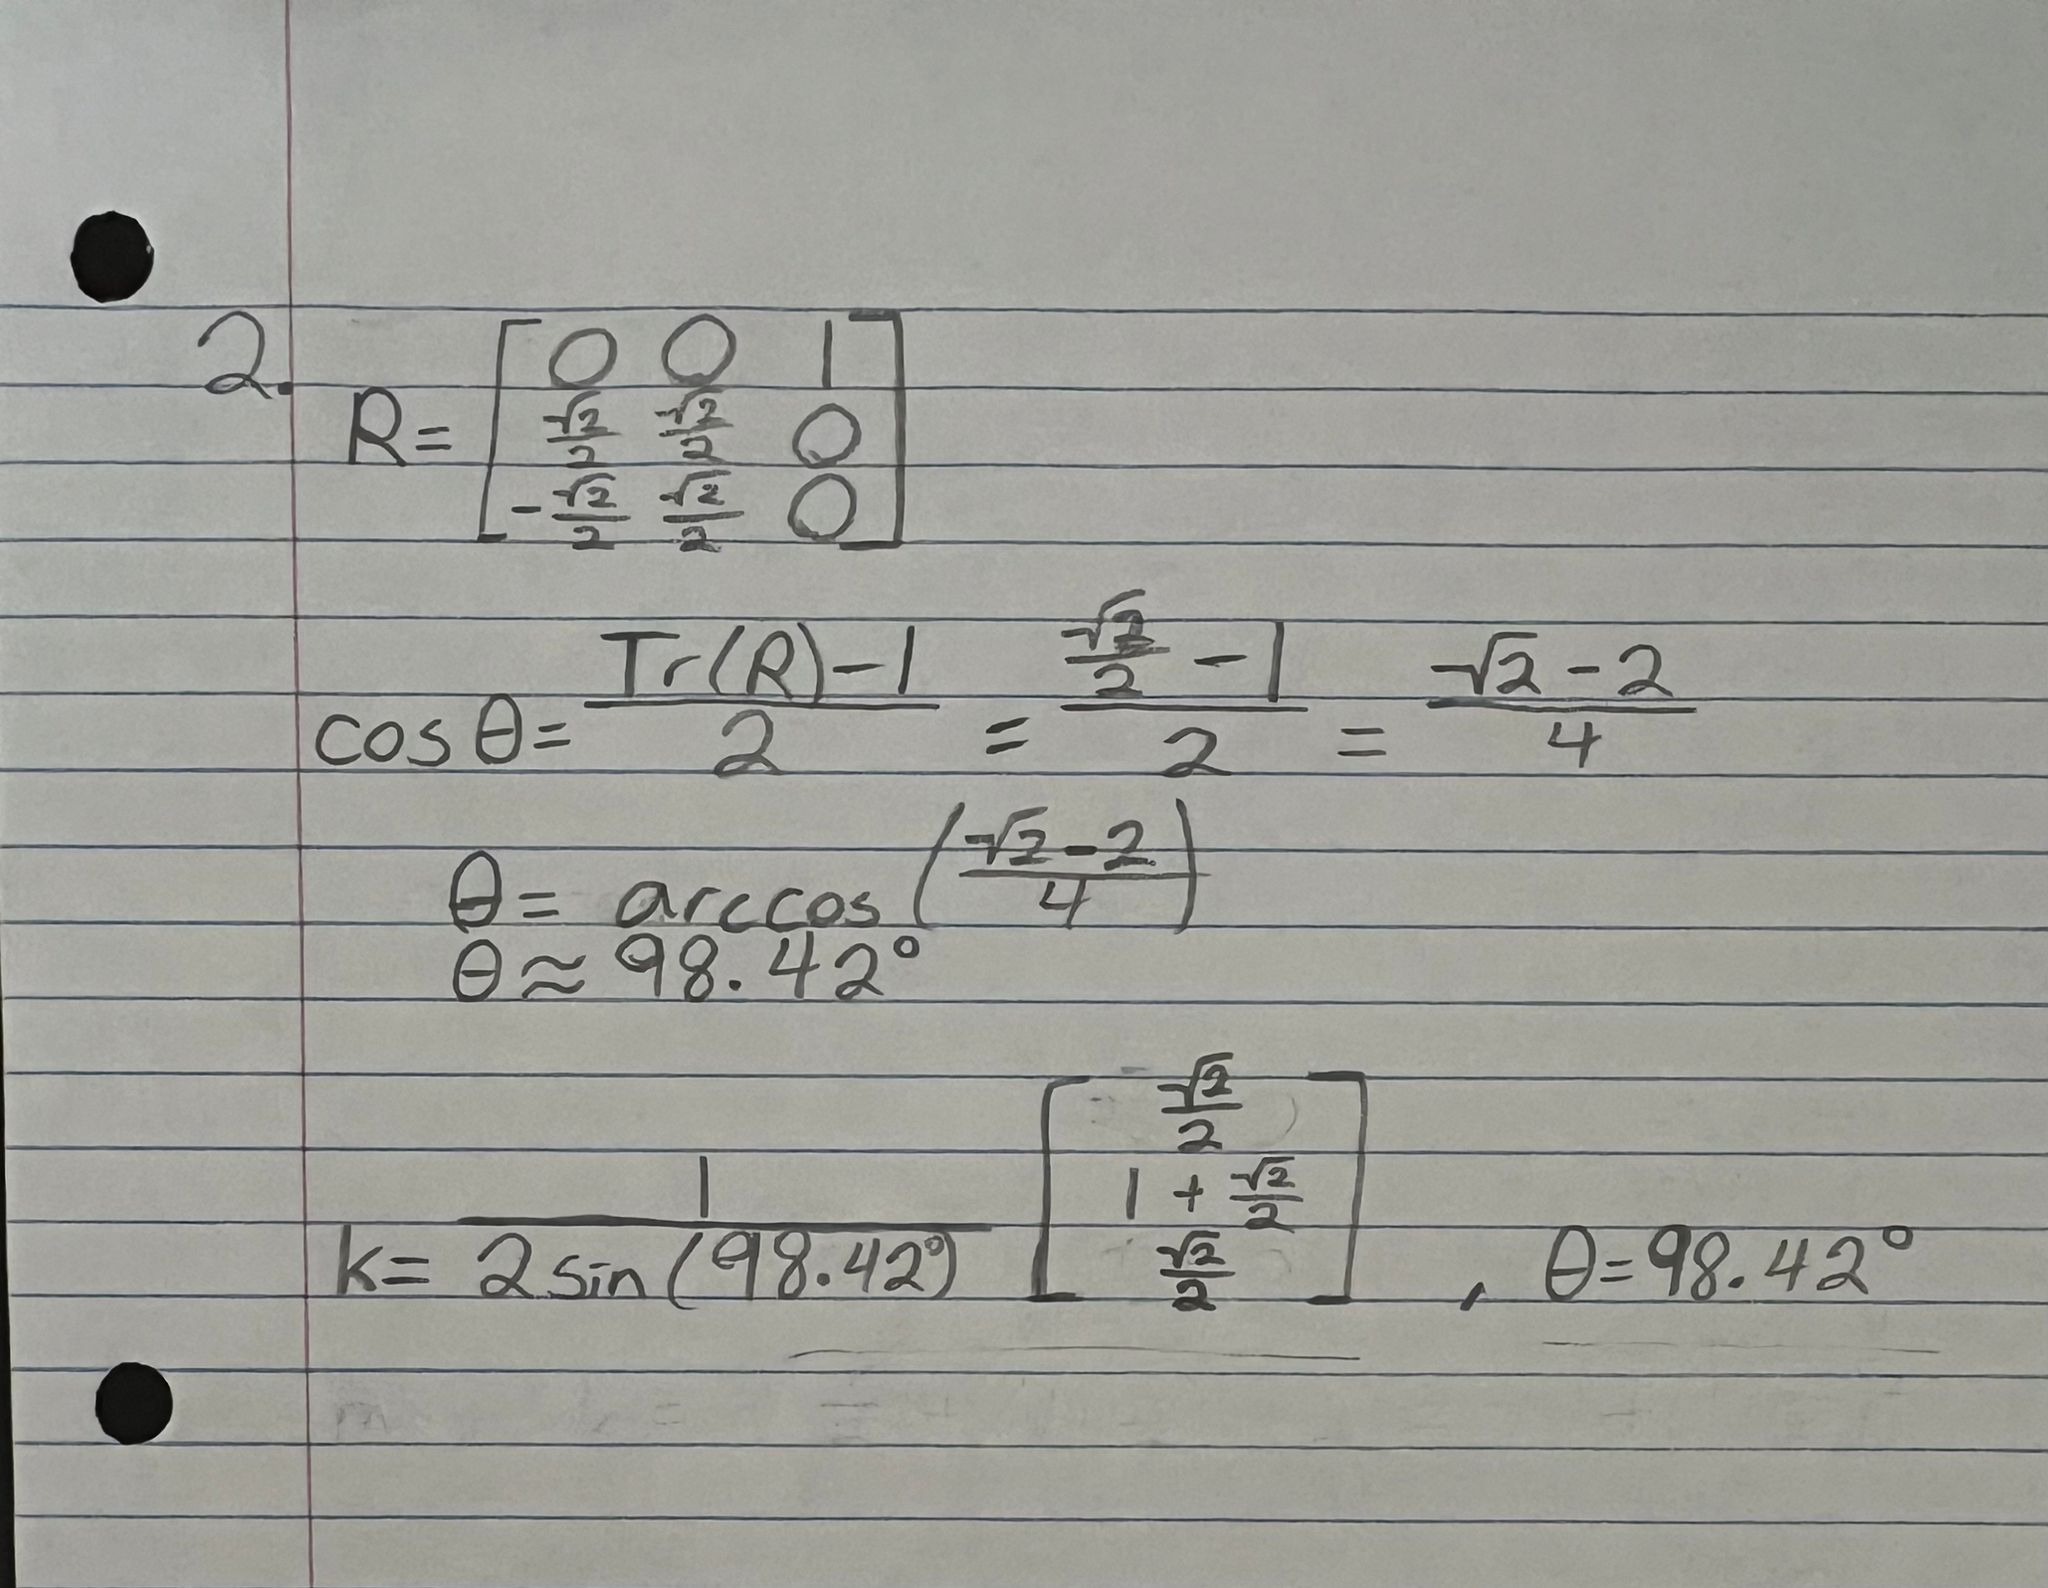 2.
R = [0 0 1; √2/2 √2/2 0; -√2/2 √2/2 0]
cos θ = (Tr(R) - 1)/2 = (√2/2 - 1)/2 = (√2 - 2)/4
θ = arccos((√2 - 2)/4)
θ ≈ 98.42°
k = 1/(2 sin(98.42°)) [√2/2; 1 + √2/2; √2/2], θ = 98.42°